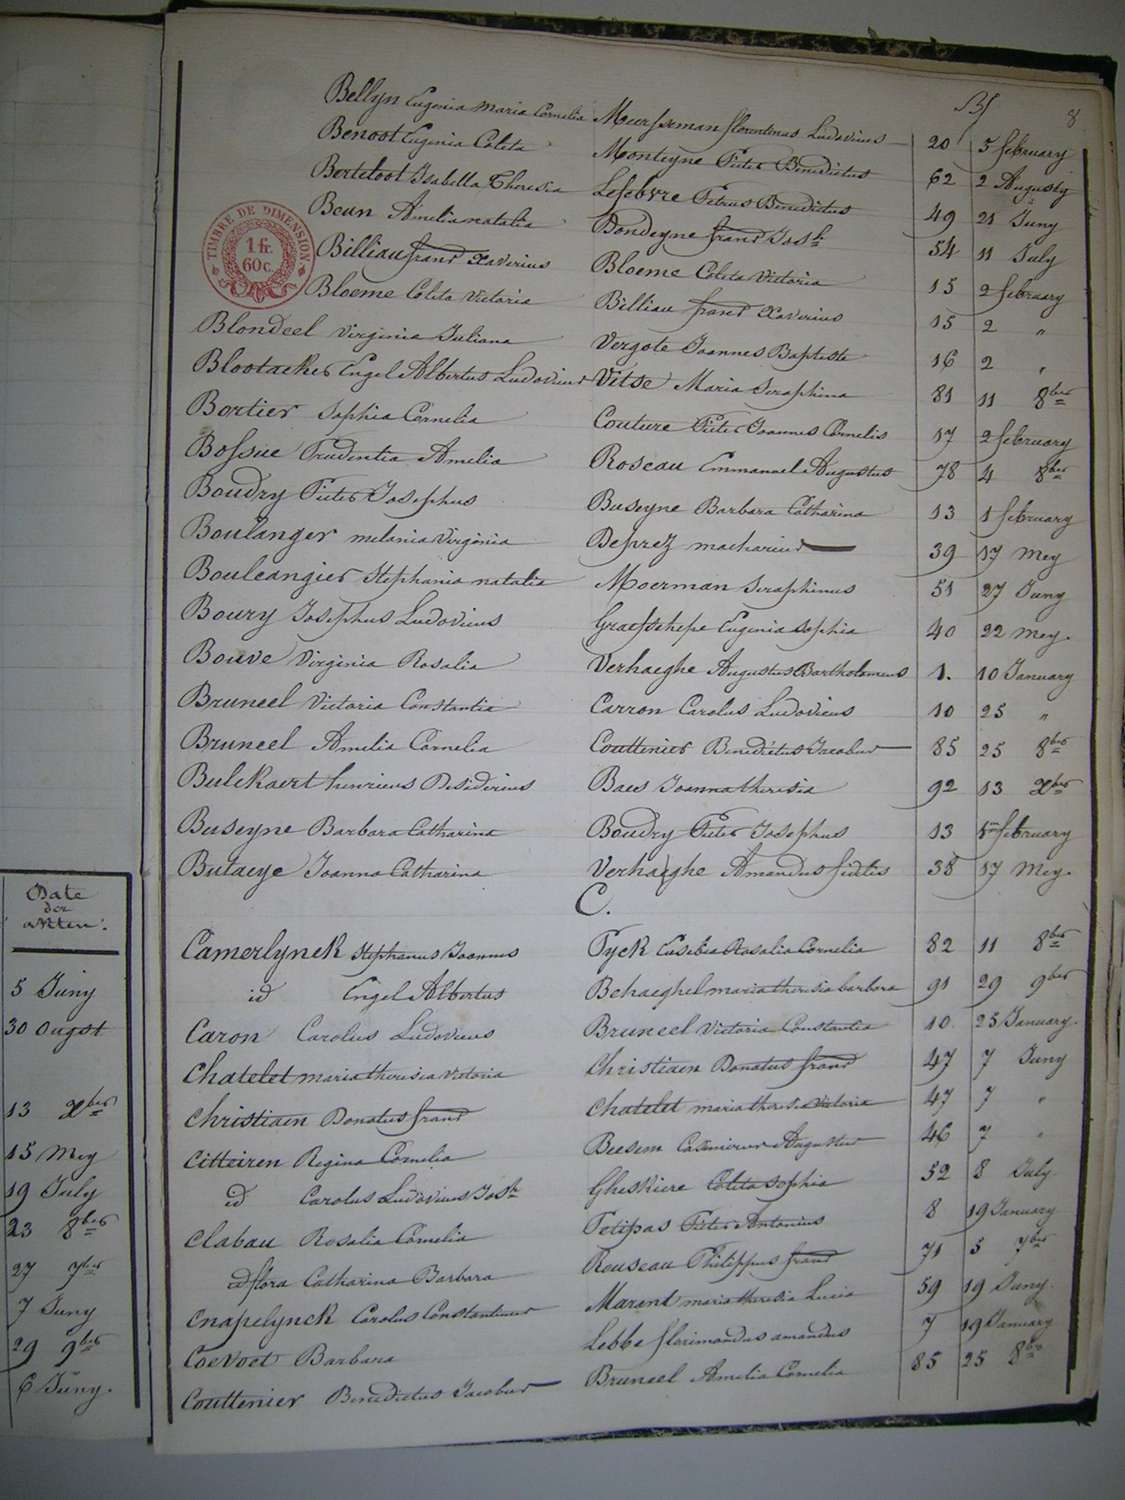 Bf 8
Bellyn Eugenia Maria Cornelia Meersseman florentinus Ludovicus 20 5 february
Benoot Eugenia Coleta Monteyne Pieter Benedictus 62 2 Augusty
Berteloot Isabella Theresia Lefebvre Petrus Benedictus 49 21 Juny
Beun Amelia natalia Dondeyne frans Josh 54 11 July
TIMBRE DE DIMENSION
1 fr.
60 c.
Billiau frans Xaverius Bloeme Coleta Victoria 15 2 february
Bloeme Coleta Victoria Billiau frans Xaverius 15 2 "
Blondeel Virginia Juliana Vergote Joannes Baptiste 16 2 "
Blootacker Engel Albertus Ludovicus Vitse Maria Seraphina 81 11 8ber
Bortier Sophia Cornelia Couture Pieter Joannes Cornelis 17 2 february
Bossue Prudentia Amelia Roseau Emmanuel Augustus 78 4 8ber
Boudry Pieter Josephus Buseyne Barbara Catharina 13 1 february
Boulanger melania Virginia Deprez macharius 39 17 Mey
Bouleangier Stephania natalia Moerman Seraphinus 51 27 Juny
Boury Josephus Ludovicus Eugenia Sophia 40 22 mey.
Bouve Virginia Rosalia Verhaeghe Augustus Bartholomeus 1. 10 January
Bruneel Victoria Constantia Carron Carolus Ludovicus 10 25 "
Bruneel Amelia Cornelia Couttenier Benedictus Jacobus 85 25 8ber
Bulckaert henricus Desiderius Baes Joanna theresia 92 13 Xber
Buseyne Barbara Catharina Boudry Pieter Josephus 13 february
Butaeye Joanna Catharina Verhaeghe Amandus fidelis 38 17 Mey.
C.
Camerlynck Stephanus Joannes Tyck Eusebia Rosalia Cornelia 82 11 8ber
id Engel Albertus Behaeghel maria theresia barbara 91 29 9ber
Caron Carolus Ludovicus Bruneel Victoria Constantia 10 25 January.
Chatelet maria theresia Victoria Christiaen Donatus frans 47 7 Juny
Christiaen Donatus frans Chatelet maria theresia Victoria 47 7 "
Citteiren Regina Cornelia Beesem Casimirus Augustus 46 7 "
id Carolus Ludovicus Josh Gheskiere Coleta Sophia 52 8 July
Clabau Rosalia Cornelia Petipas Pieter Antonius 8 19 January
id flora Catharina Barbara Rouseau Philippus frans 71 5 7ber
Cnapelynck Carolus Constantinus Marant maria theresia Lucia 59 19 Juny.
Coevoet Barbara Lebbe florimondus amandus 7 19 January
Couttenier Benedictus Jacobus Bruneel Amelia Cornelia 85 25 8ber
Date
der
akten.
5 Juny
30 Ougst
13 Xber
15 Mey
19 July
23 8ber
27 7ber
7 Juny
29 9ber
6 Juny.